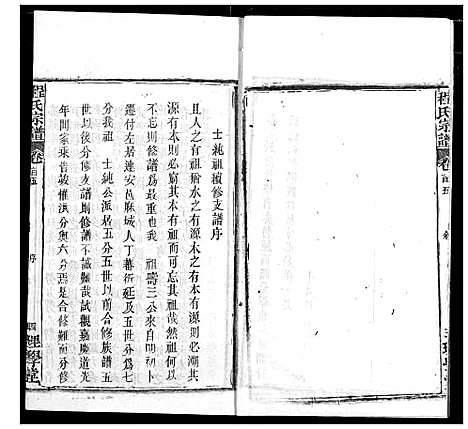 程氏宗譜
卷首五
士純祖續修支譜序
且人之有祖猶水之有源木之有本有源則必溯其
源有本則必窮其本有祖而可忘其祖哉然祖何以
不忘則修譜為最重也我 祖壽三公來自明初卜
遷付左居連安邑麻城人丁蕃衍延及五世分為七
分我祖 士純公派居五分五世以前合修族譜五
世以後分修支譜則修譜不誠難哉試觀嘉慶道光
年間家乘昔被惟洪分與六分焉是合修難而分修
程氏宗譜
卷首五
序
四
理學堂